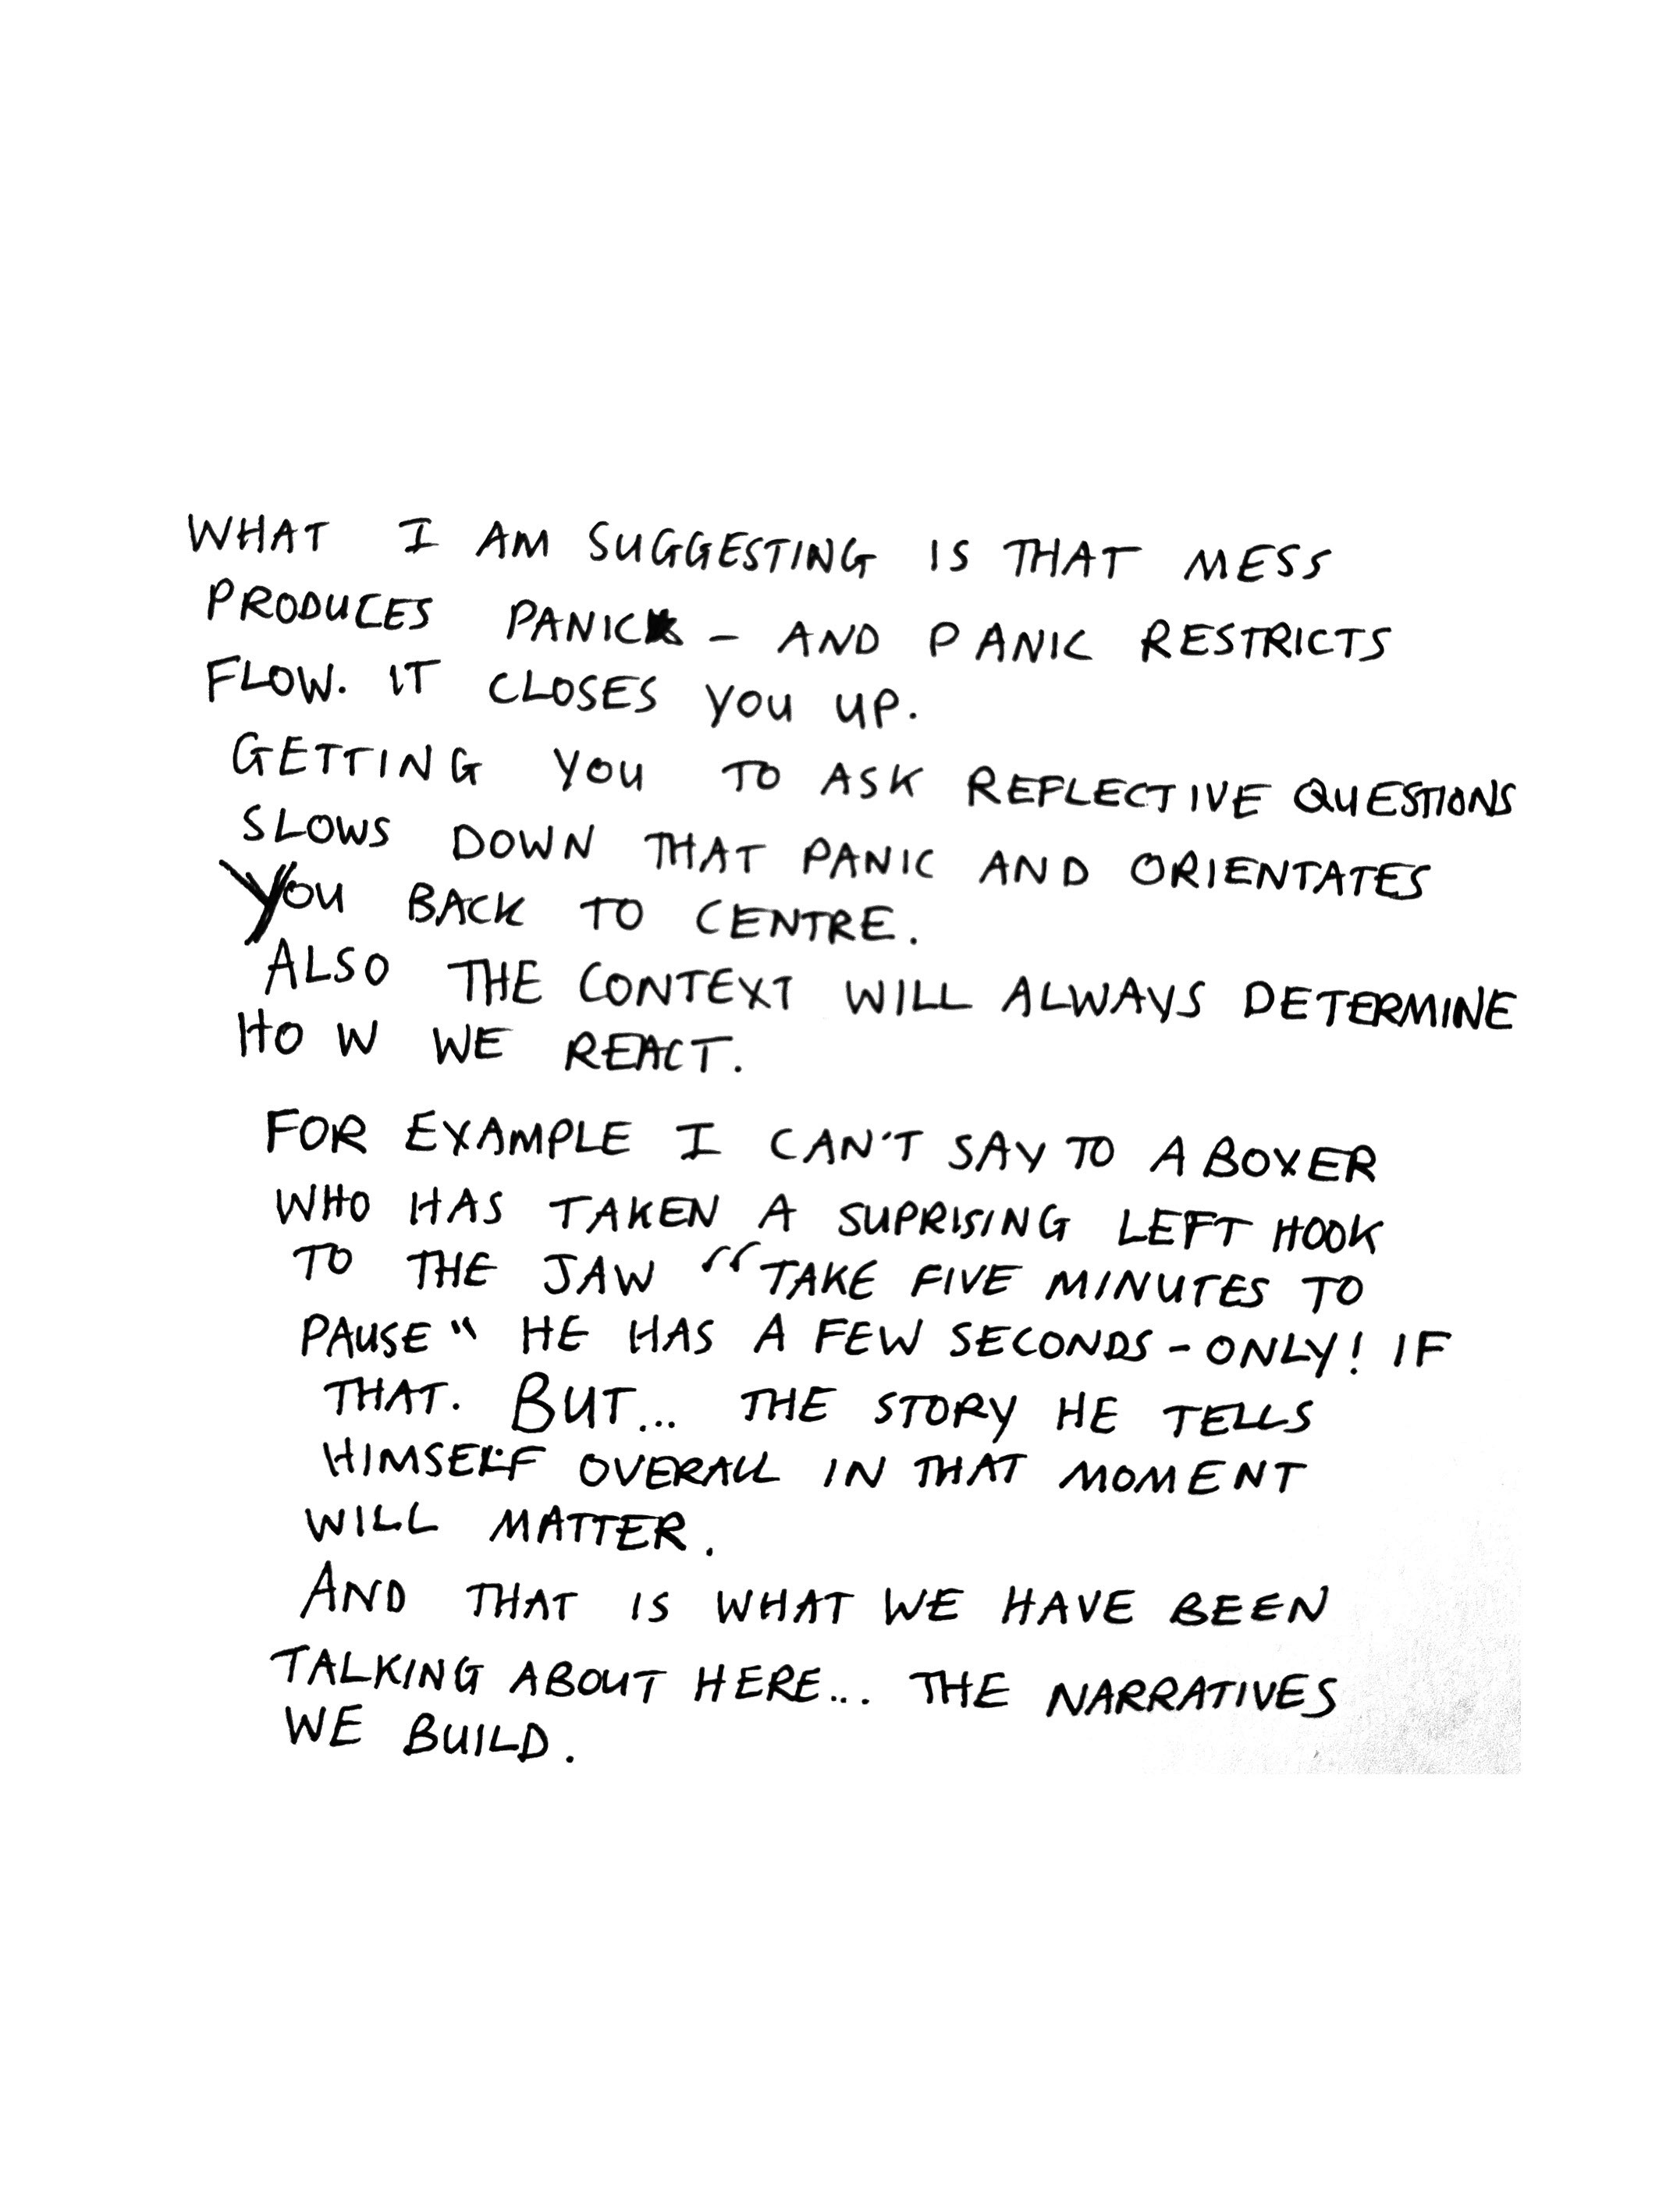 WHAT I AM SUGGESTING IS THAT MESS
PRODUCES PANIC - AND PANIC RESTRICTS
FLOW. IT CLOSES YOU UP.
GETTING YOU TO ASK REFLECTIVE QUESTIONS
SLOWS DOWN THAT PANIC AND ORIENTATES
YOU BACK TO CENTRE.
ALSO THE CONTEXT WILL ALWAYS DETERMINE
HOW WE REACT.
FOR EXAMPLE I CAN'T SAY TO A BOXER
WHO HAS TAKEN A SUPRISING LEFT HOOK
TO THE JAW “TAKE FIVE MINUTES TO
PAUSE" HE HAS A FEW SECONDS - ONLY! IF
THAT. BUT... THE STORY HE TELLS
HIMSELF OVERALL IN THAT MOMENT
WILL MATTER.
AND THAT IS WHAT WE HAVE BEEN
TALKING ABOUT HERE... THE NARRATIVES
WE BUILD.